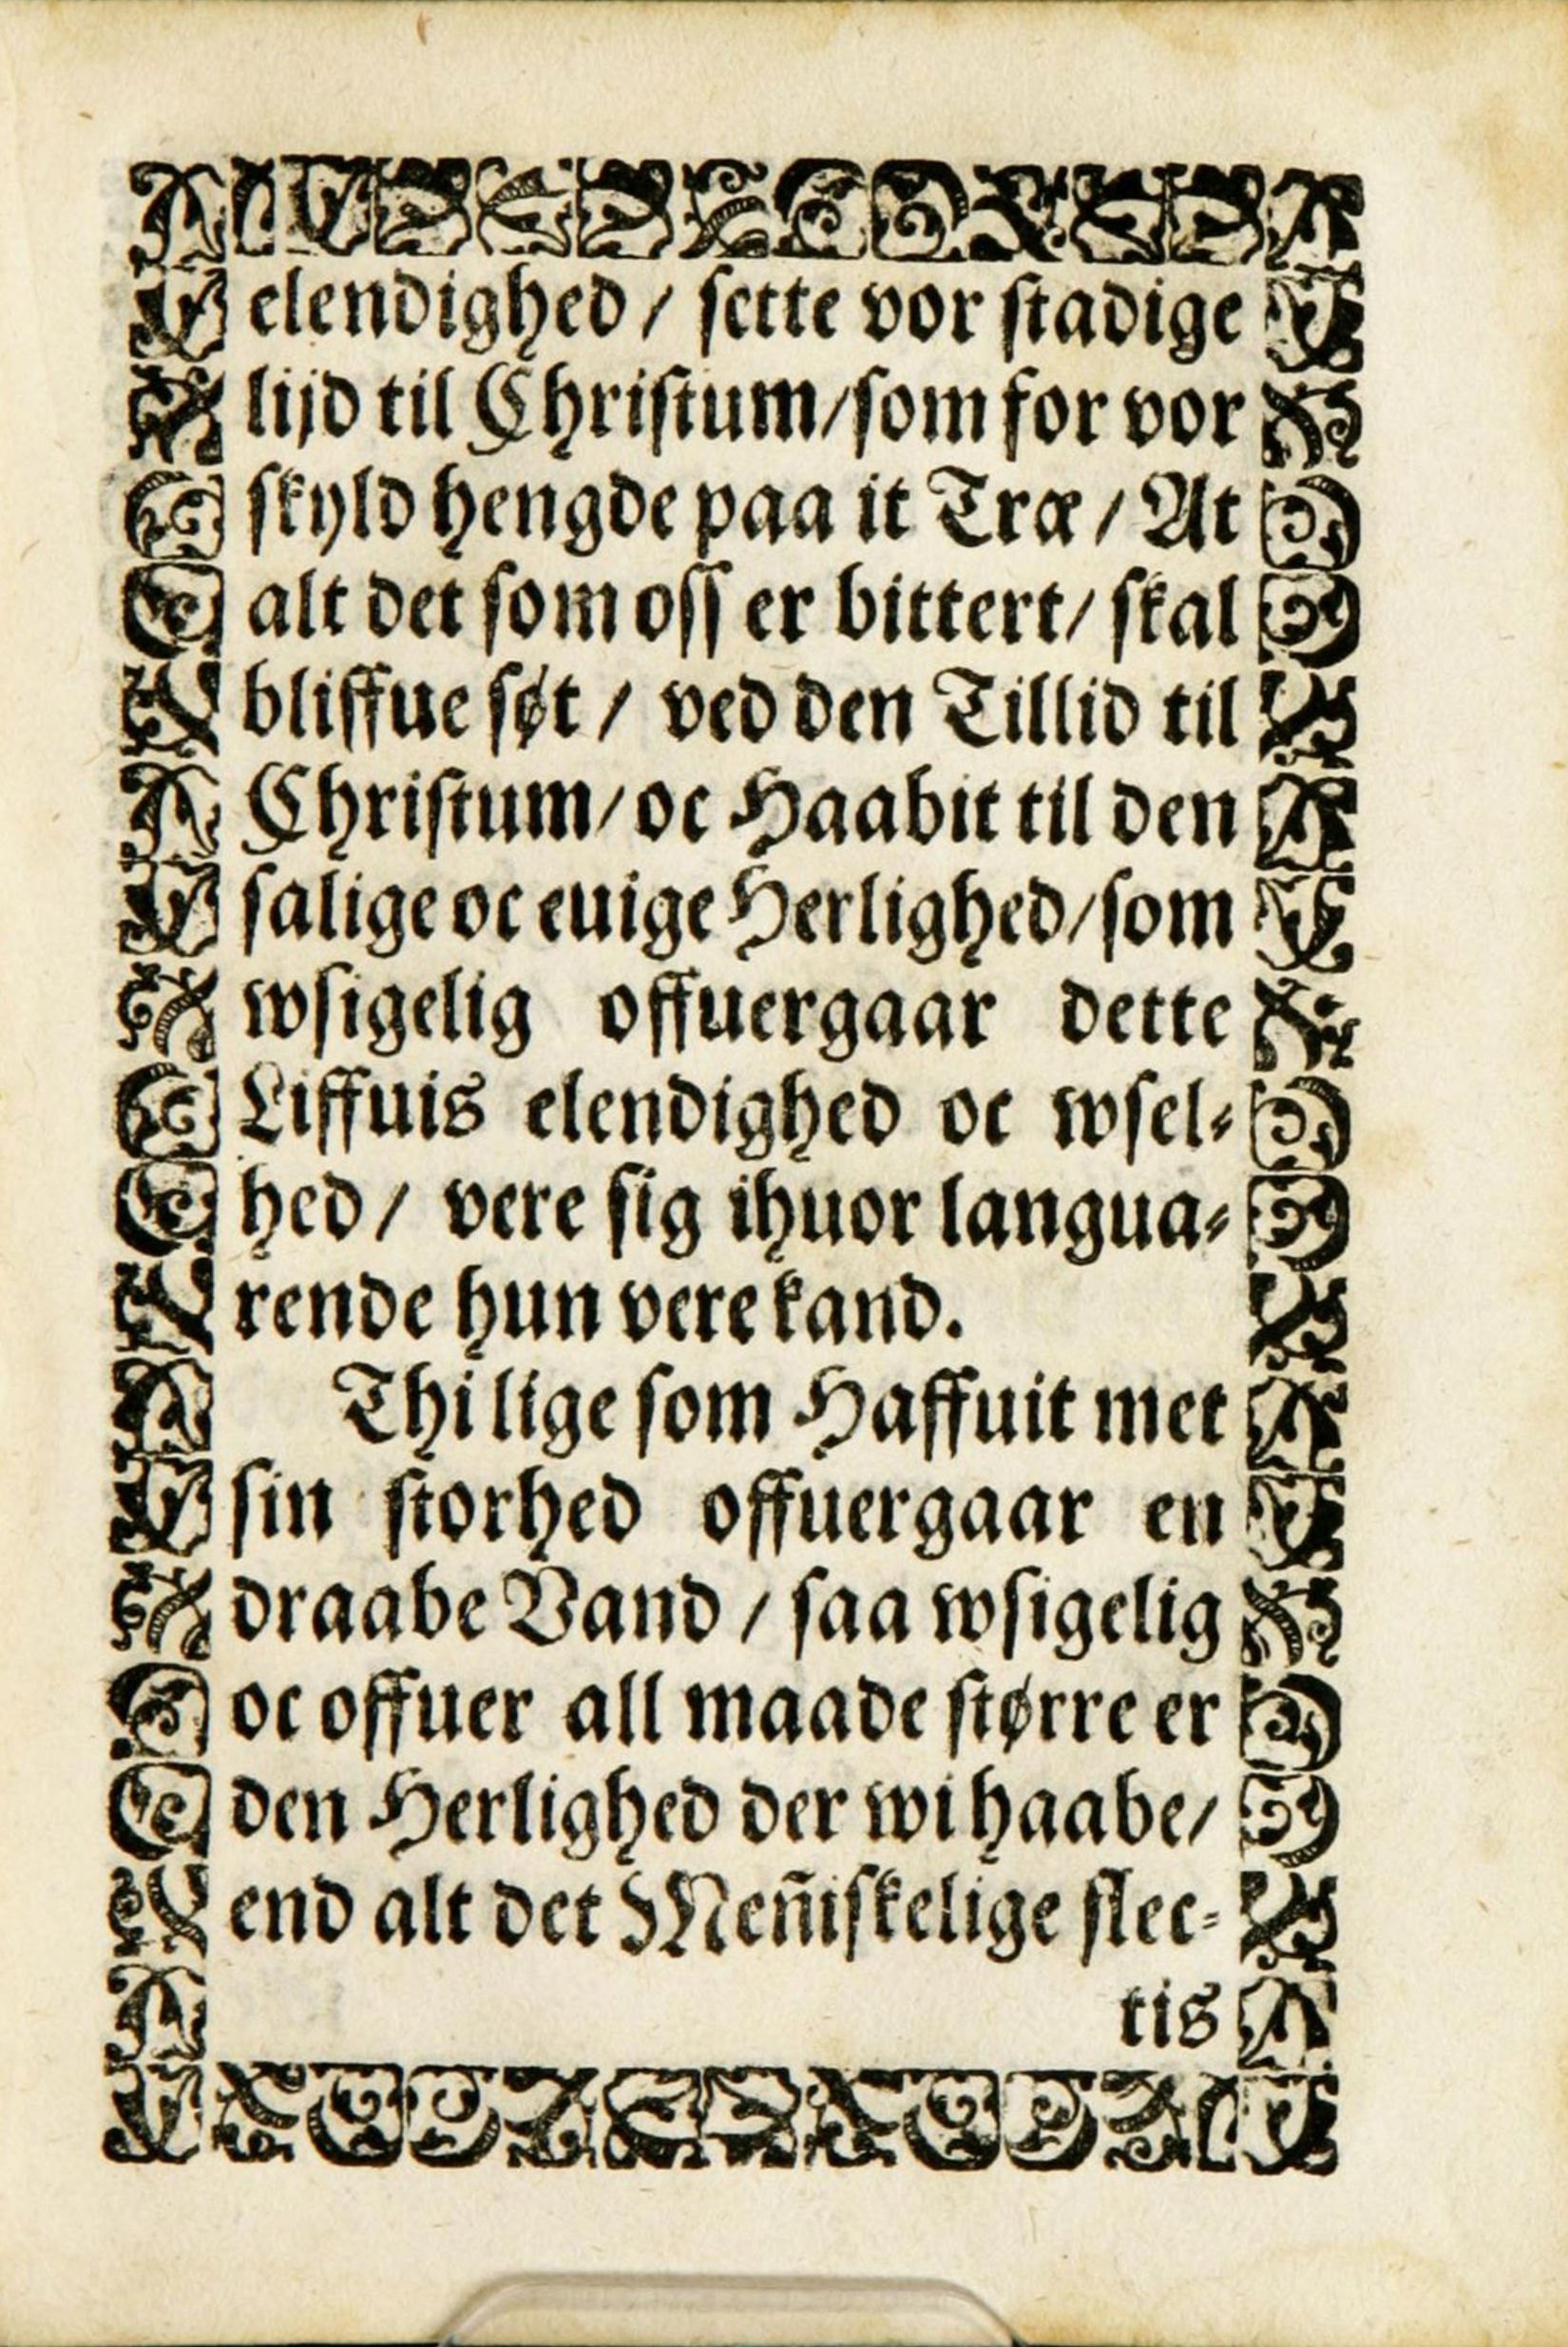 elendighed / sette vor stadige
lijd til Christum/som for vor
skyld hengde paa it Træ / At
alt det som oss er bittert/ skal
bliffue søt / ved den Tillid til
Christum/ oc Haabit til den
salige oc euige Herlighed/som
wsigelig offuergaar dette
Liffuis elendighed oc wsel⸗
hed / vere sig ihuor langua⸗
rende hun vere kand.
Thi lige som Haffuit met
sin storhed offuergaar en
draabe Vand / saa wsigelig
oc offuer all maade større er
den Herlighed der wi haabe/
end alt det Men̄iskelige slec⸗
tis